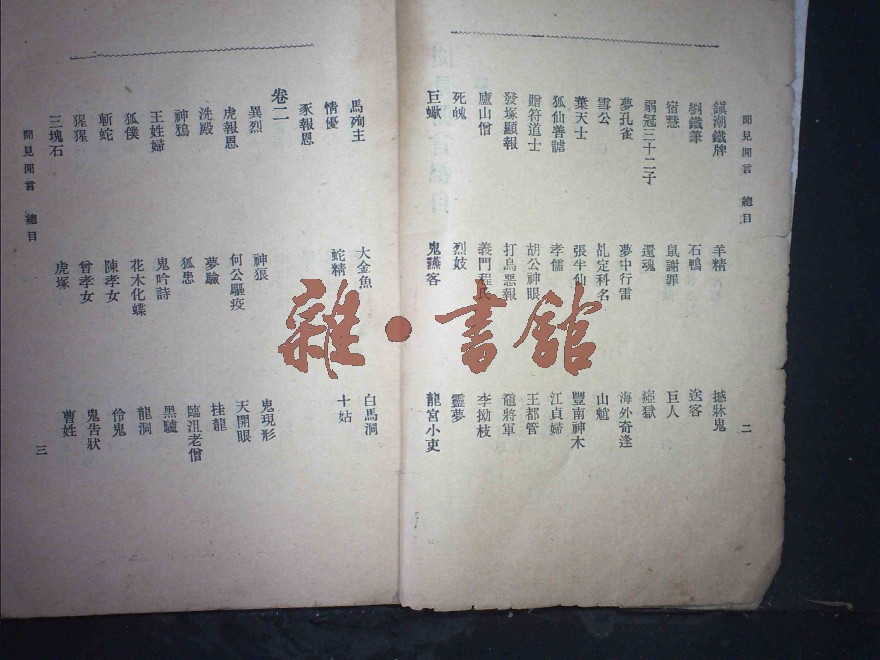 聞見閒言 總目 二
鎮潮鐵牌 羊精 撼牀鬼
劉鐵筆 石鴨 送客
宿慧 鼠謝罪 巨人
弱冠三十二子 還魂
夢孔雀 夢中行雷 海外奇逢
雪公 乩定科名 山魈
葉天士 張牛仙 豐南神木
狐仙善謔 孝儒 江貞婦
贈符道士 胡公神眼 王都管
發塚顯報 打鳥惡報 將軍
廬山僧 義門程氏 李拗枝
死魄 烈妓 靈夢
巨蠍 鬼讌客 龍宮小吏
馬殉主 大金魚 白馬洞
情優 蛇精 十姑
豕報恩
卷二
異烈 神狼 鬼現形
虎報恩 何公驅疫 天開眼
洗殿 夢驗 挂龍
神鴉 狐患 臨沮老僧
王姓婦 鬼吟詩 黑驢
狐僕 花木化蝶 龍洞
斬蛇 陳孝女 伶鬼
猩猩 曾孝女 鬼告狀
三塊石 虎塚 曹姓
聞見閒言 總目 三
雜·書館